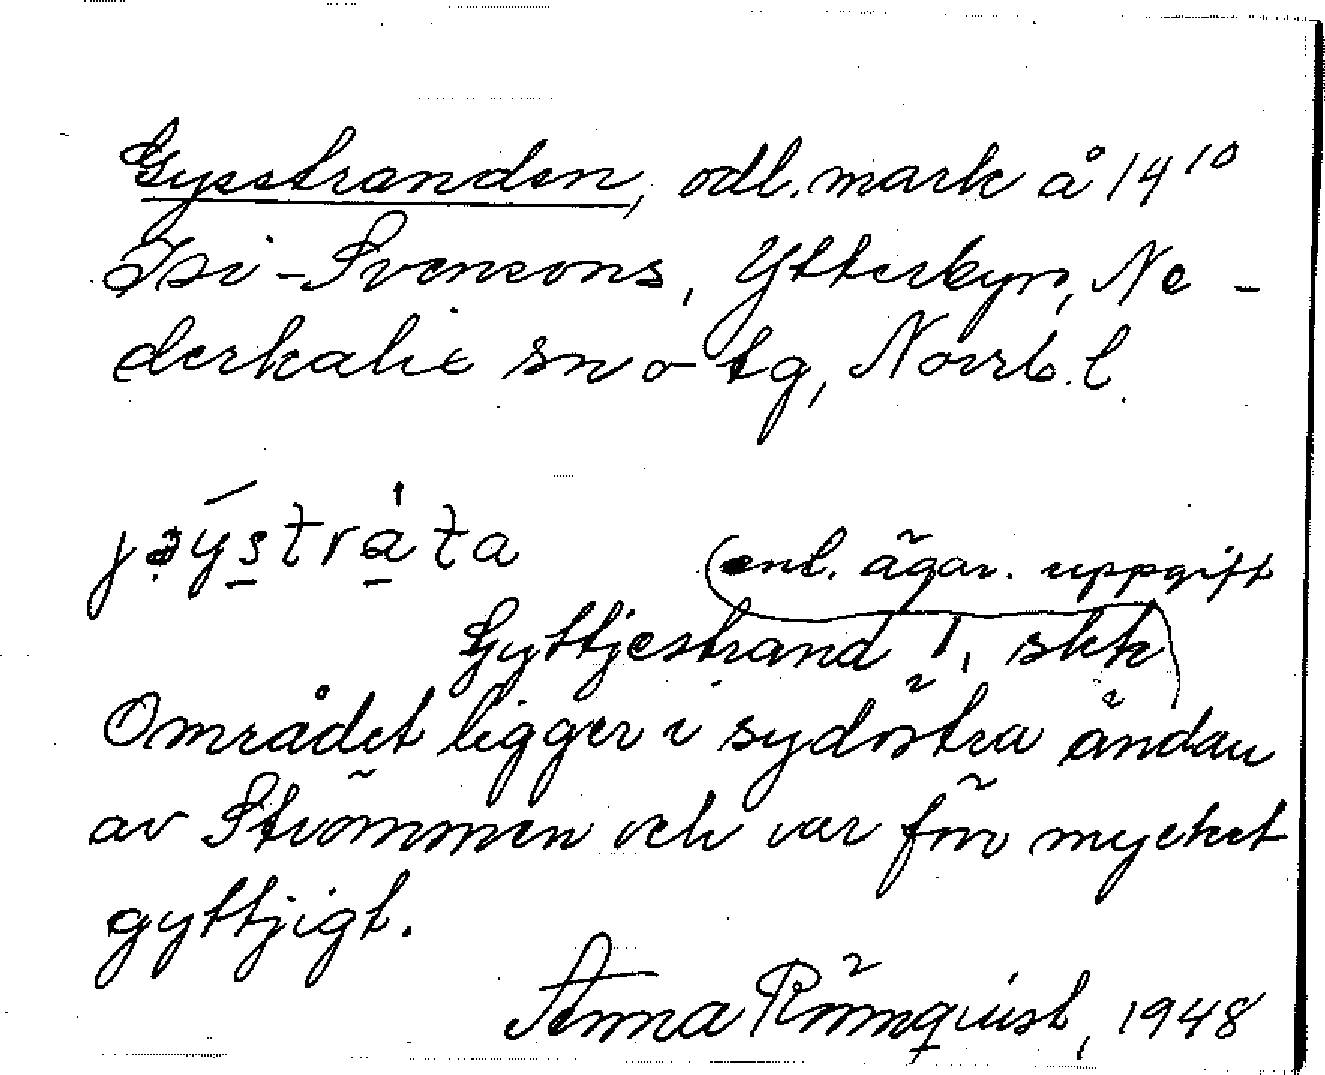 Gysstranden, odl. mark å 14¹⁰
Isi-Svensons, Ytterbyn, Ne-
derkalix sn o tg, Norrb. l.
(enl. ägar. uppgift
Gyttjestrand 1, skk)
Området ligger i sydöstra ändan
av Strömmen och var förr mycket
gyttjigt.
Anna Rönnquist, 1948